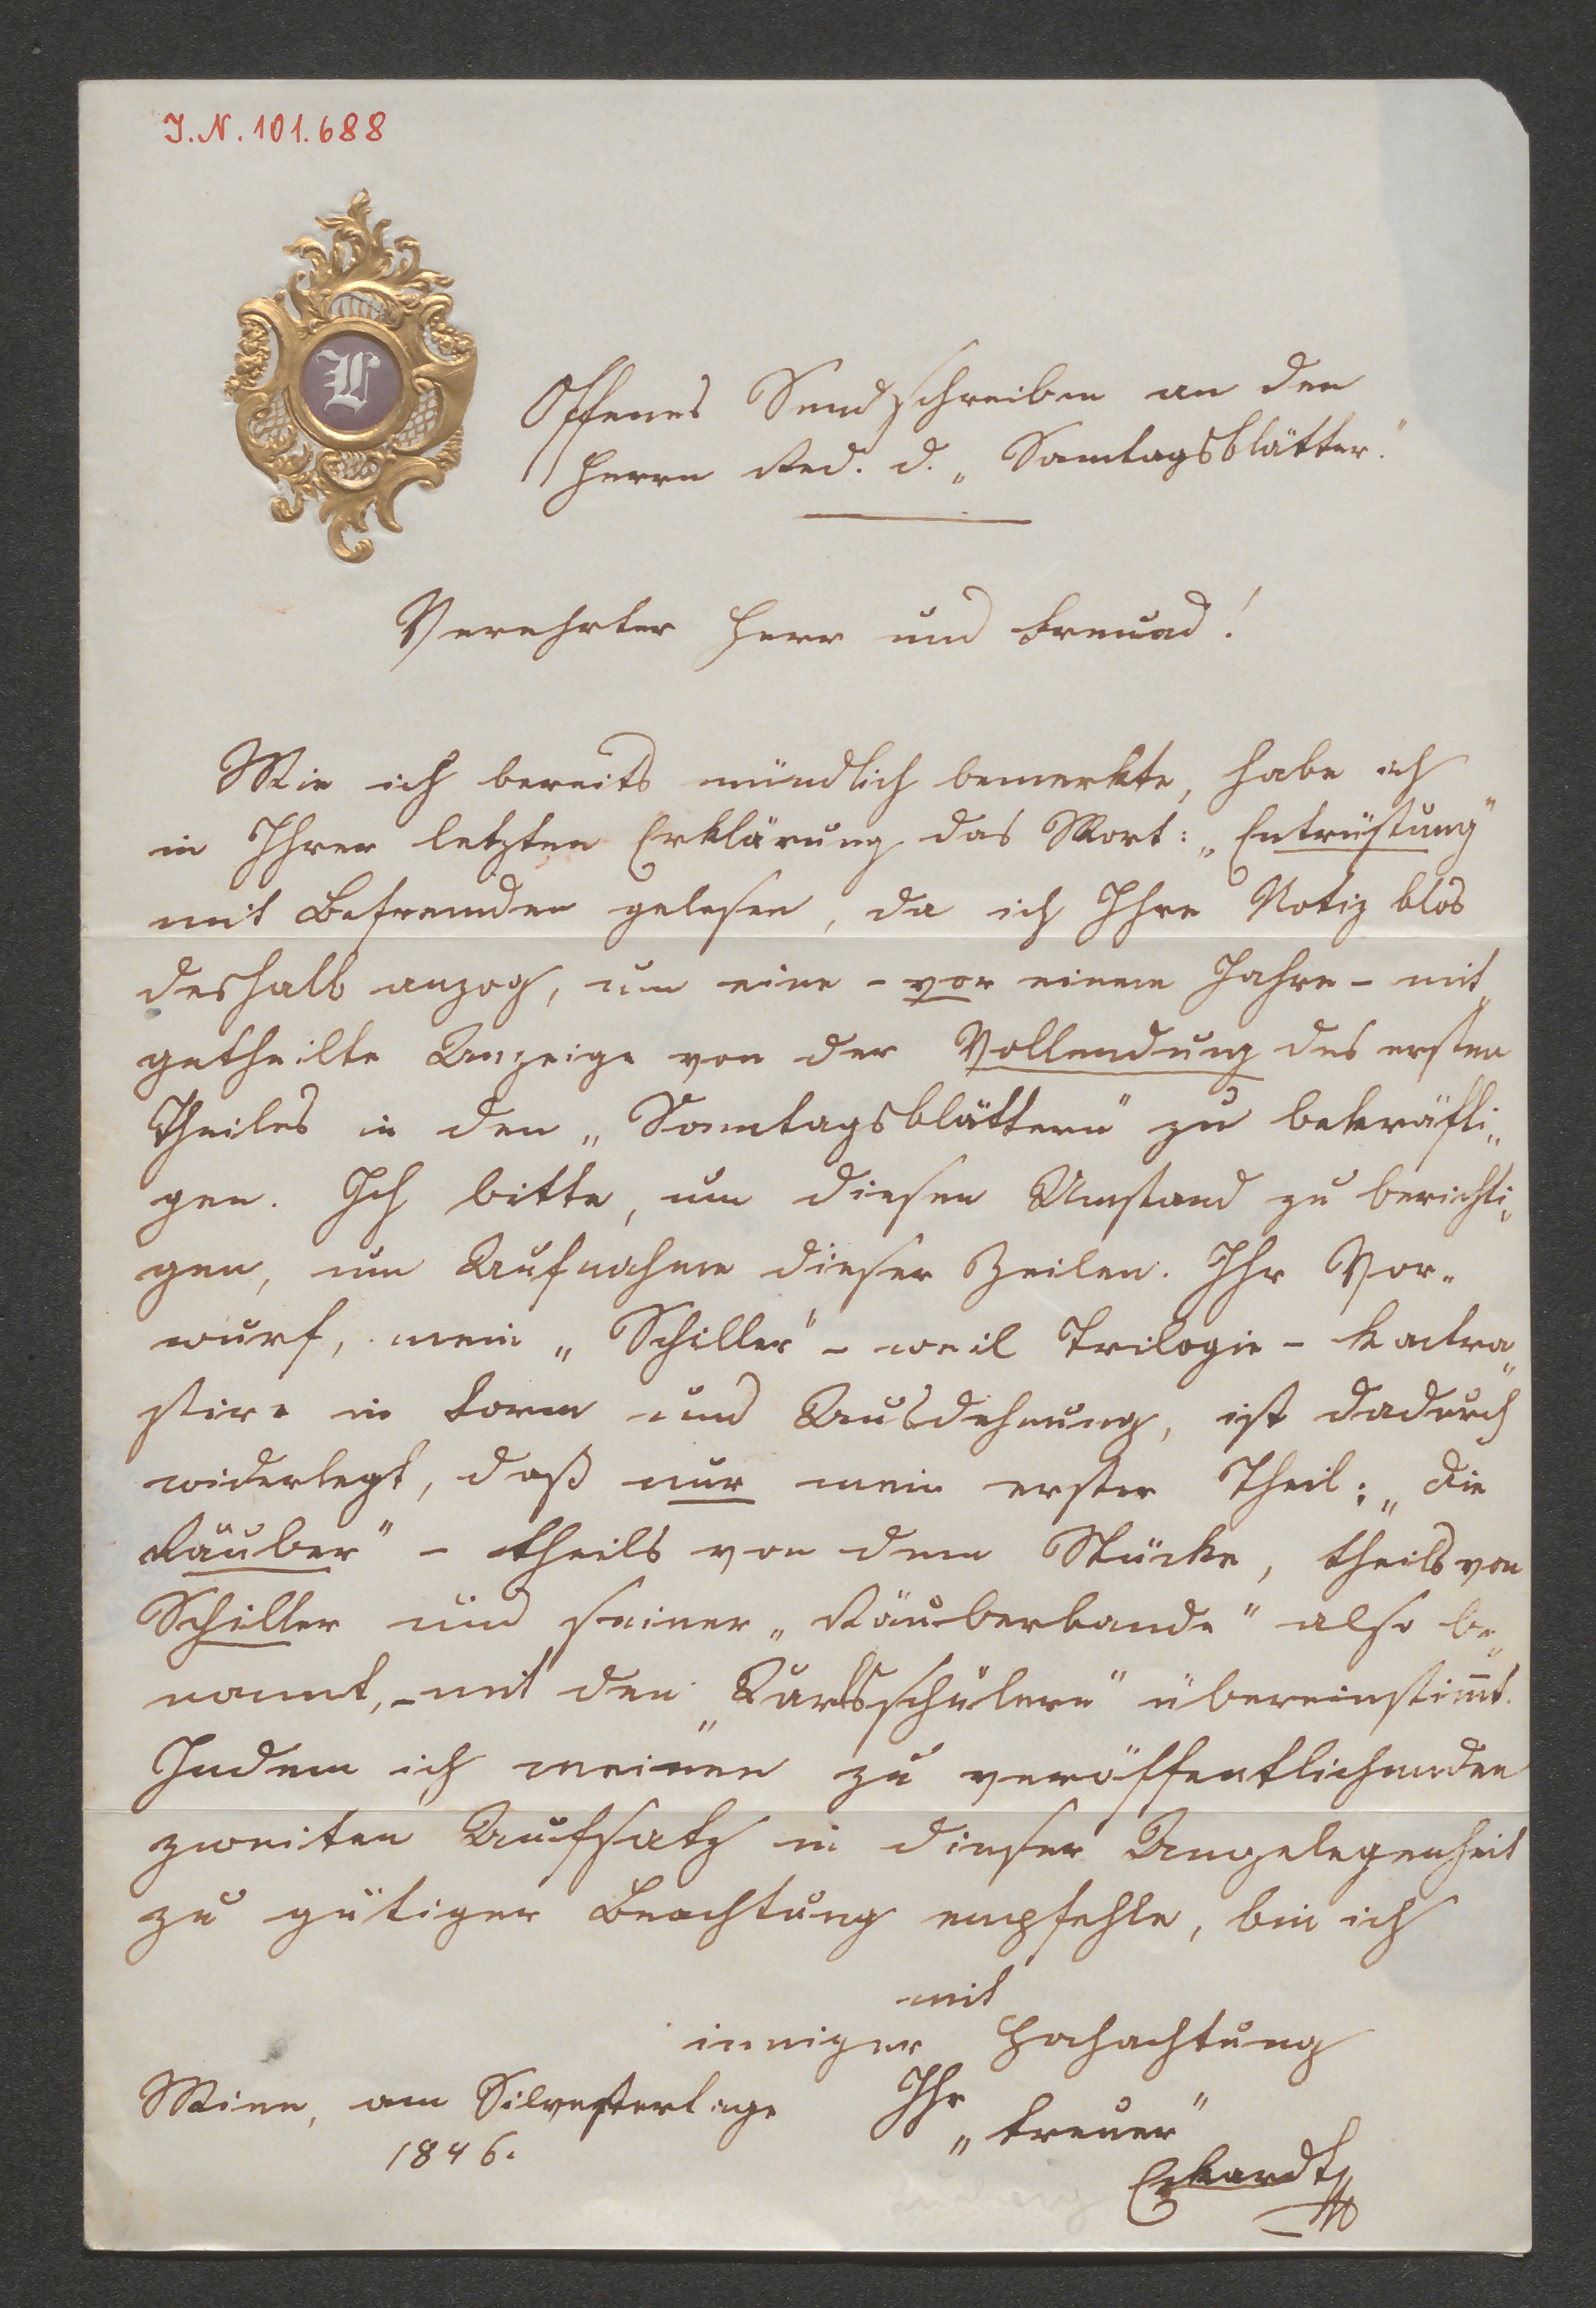 J. N. 101.688
L
Offenes Sendschreiben an den
Herrn Red. d. „Sontagsblätter."
Verehrter Herr und Freund!
Wie ich bereits mündlich bemerkte, habe ich
in Ihrer letzten Erklärung das Wort: „Entrüstung"
mit Befremden gelesen, da ich Ihre Notiz blos
deshalb anzog, um eine - vor einem Jahre - mit„
getheilte Anzeige von der Vollendung des ersten
Theiles in den „Sontagsblättern" zu bekräfti„
gen. Ich bitte, um diesen Umstand zu berichti„
gen, um Aufnahme dieser Zeilen. Ihr Vor-
wurf, mein „Schiller" - weil Trilogie - kontra„
stire in Form und Ausdehnung, ist dadurch
widerlegt, daß nur mein erster Theil: „Die
Räuber" - theils von dem Stücke, theils von
Schiller und seiner „Räuberbande" also be„
nannt, - mit den „Karlsschülern" übereinstim̅t.
Indem ich meinen zu veröffentlichenden
zweiten Aufsatz in dieser Angelegenheit
zu gütiger Beachtung empfehle, bin ich
mit
inniger Hochachtung
Wien, am Silvestertage Ihr
„treuer"
1846.
Eckardt